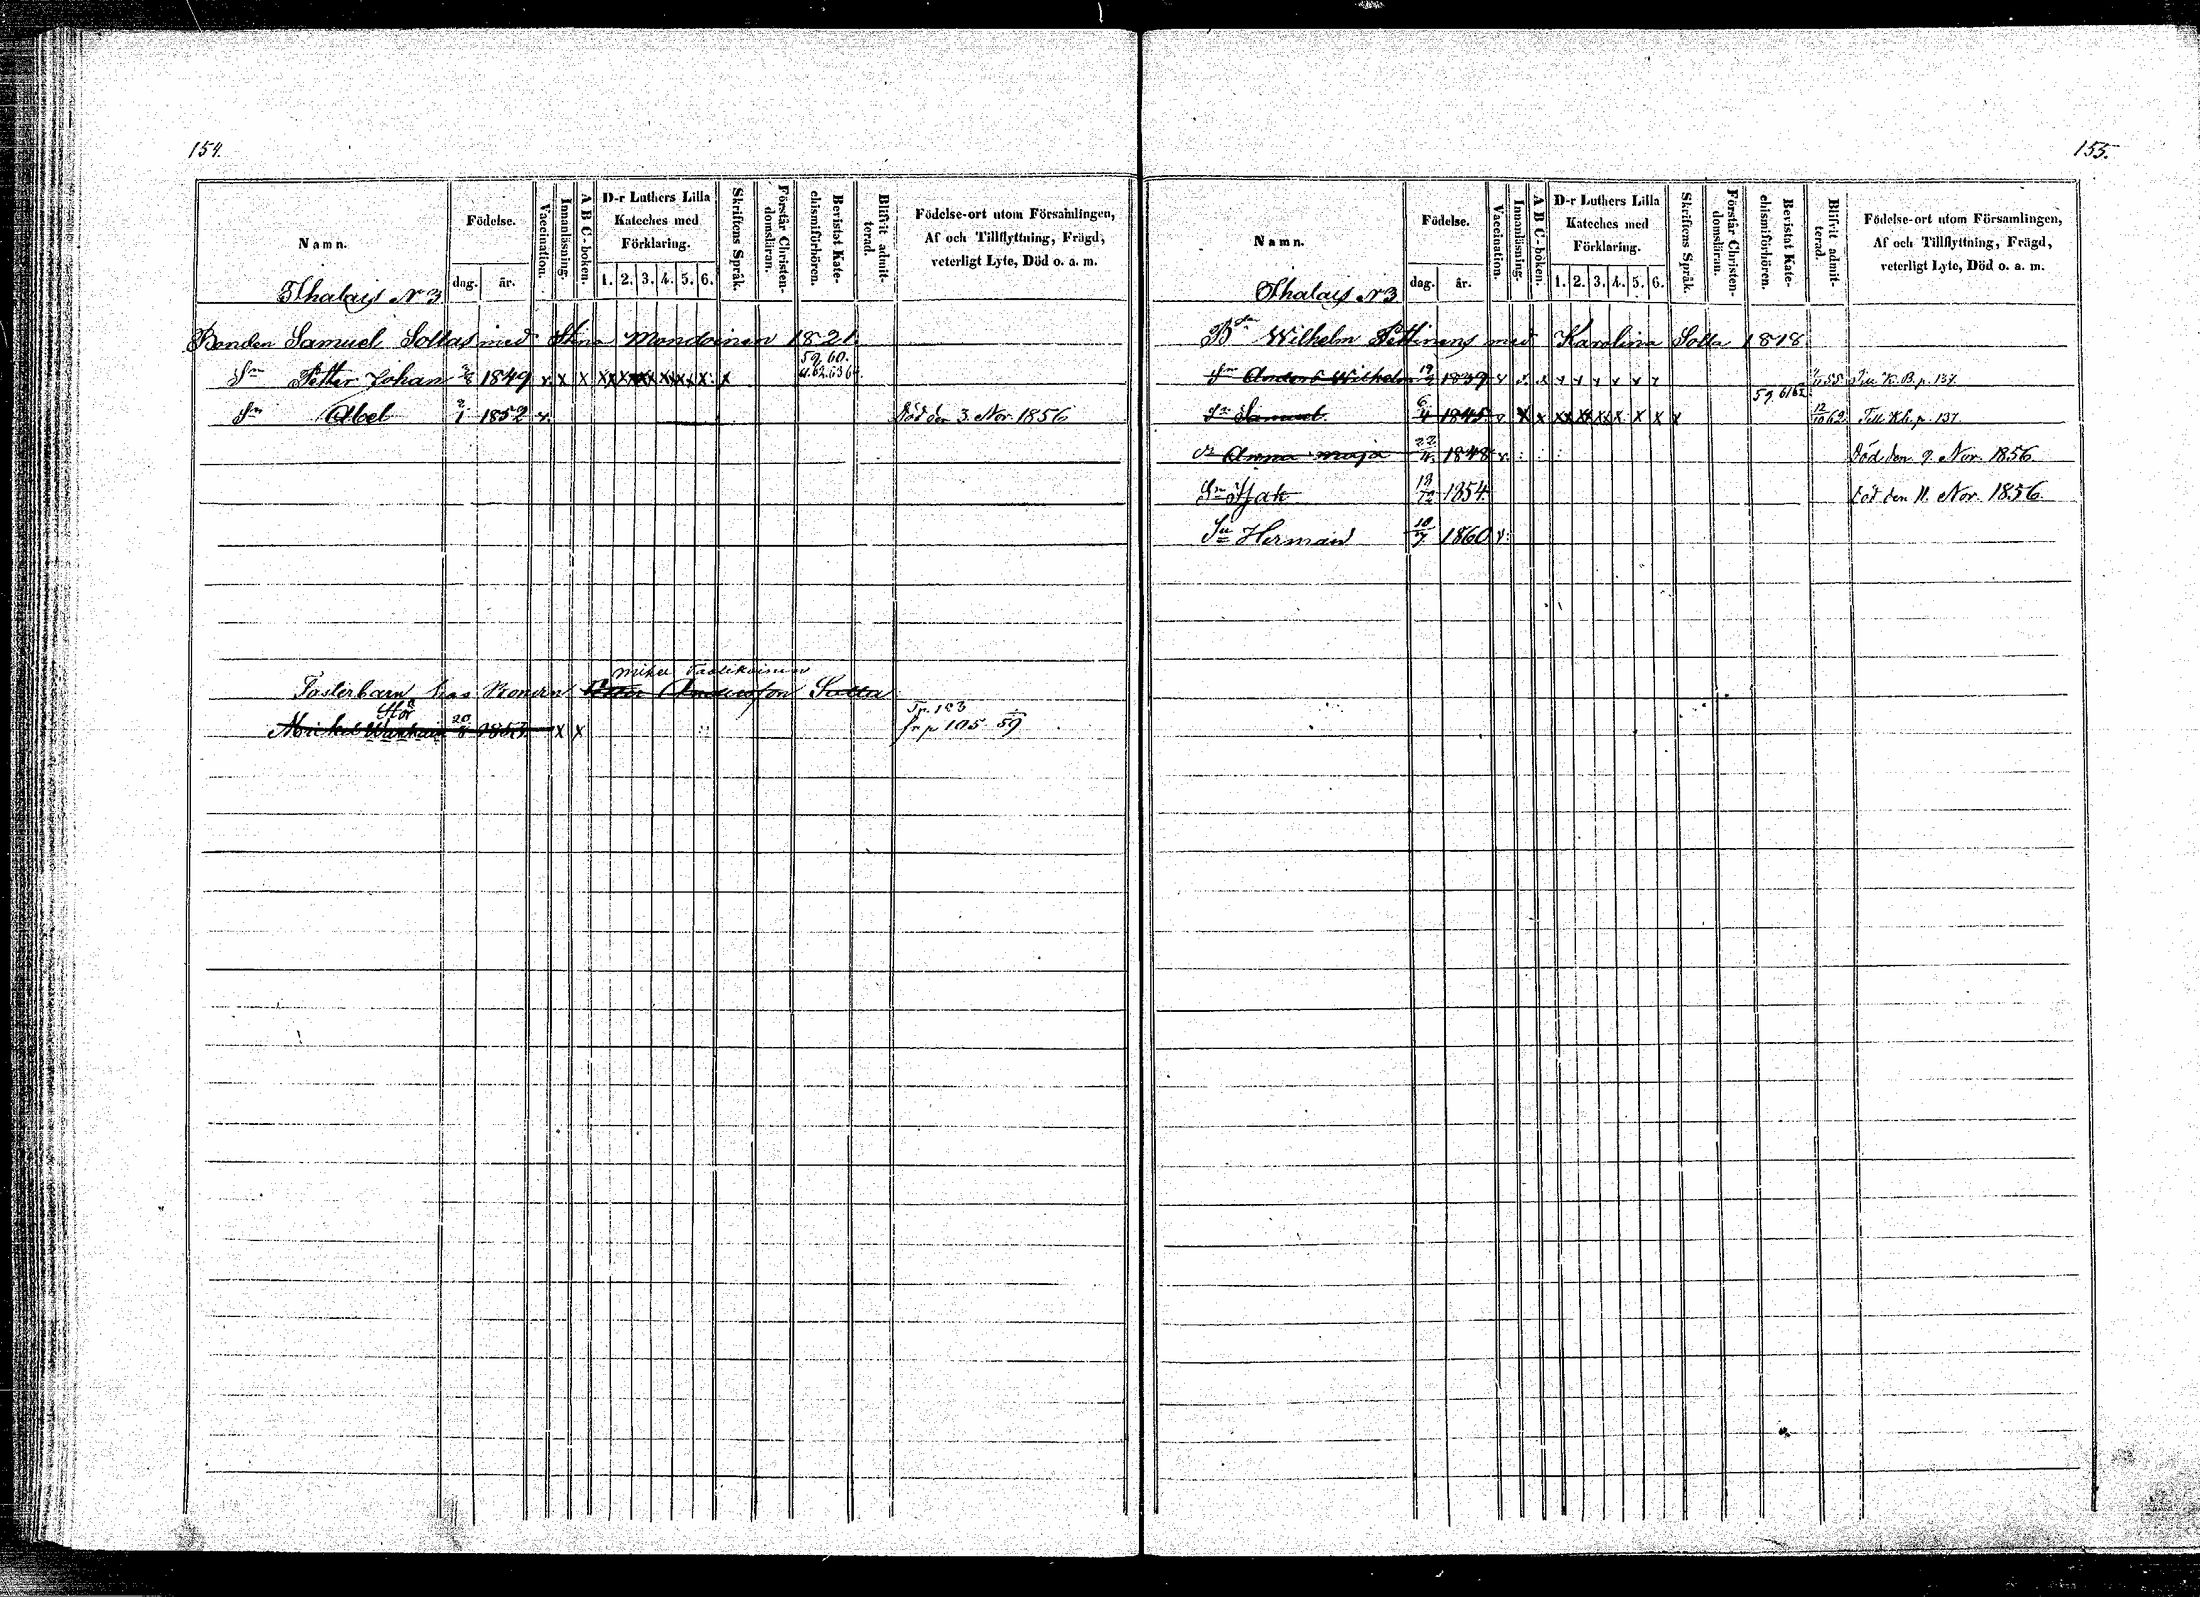 154.
Namn.
Födelse.
dag.
år.
Vaccination.
Innanläsning.
A B C-boken.
D-r Luthers Lilla
Kateches med
Förklaring.
1. 2. 3. 4. 5. 6.
Skriftens Språk.
Förstår Christen-
domsläran.
Bevistat Kate-
chismiförhören.
Blifvit admit-
terad.
Födelse-ort utom Församlingen,
Af och Tillflyttning, Frägd,
veterligt Lyte, Död o. a. m.
Ithalais N 3
Bonden Samuel Sottas med Stina Mondoinen 1821.
59. 60.
Sn Petter Johan 1849 v. x x x x x x x x x
61. 62. 63 64
Sn Abel 2/1 1852 v. Död den 3. Nov. 1856
Mikel
Fosterbarn hos Bonden Petter Andersson Sotta
Fr. 123
Mickel 20 1853 x x fr p 105 59
155.
Namn.
Födelse.
dag.
år.
Vaccination.
Innanläsning.
A B C-boken.
D-r Luthers Lilla
Kateches med
Förklaring.
1. 2. 3. 4. 5. 6.
Skriftens Språk.
Förstår Christen-
domsläran.
Bevistat Kate-
chismiförhören.
Blifvit admit-
terad.
Födelse-ort utom Församlingen,
Af och Tillflyttning, Frägd,
veterligt Lyte, Död o. a. m.
Ithalais N 3
Bdn Wilhelm Pettinens med Karolina Sotta 1818
Sn Anders Wilhelm 1839 v x x x x x x x x 55. Till K. B. p. 137.
59. 61 62.
Sn Samuel 6/4 1845 v x x x x x x x x x 12/10 62. Till K.b. p. 137.
Dr Anna Maja 22 1848 v. Död den 9. Nov. 1856
Sn Isak 19/12 1854 Död den 11. Nov. 1856
Sn Herman 10/7 1860 v.